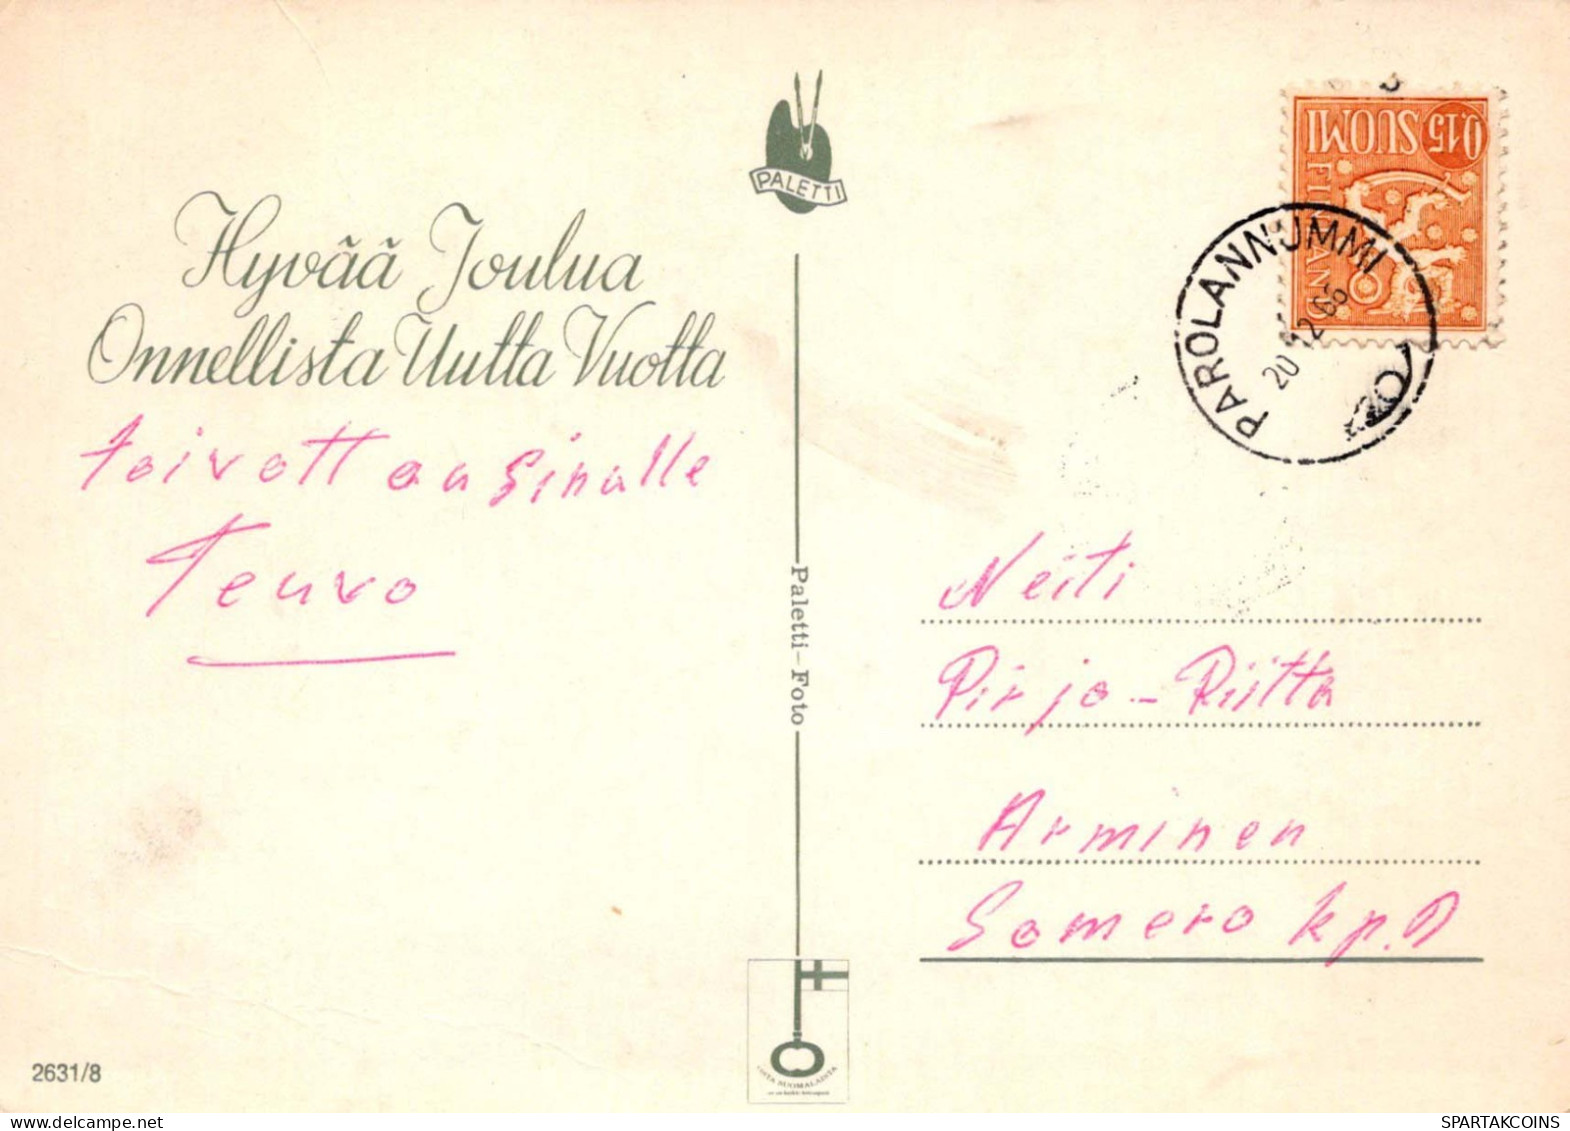 PALETTI
Hyvää Joulua
Onnellista Uutta Vuotta
toivottaa Sinulle
Teuvo
Paletti-Foto
2631/8
OSTA SUOMALAISTA
0,15 SUOMI
FINLAND
PAROLANNUMMI
20 12 66
Neiti
Pirjo-Riitta
Arminen
Somero kp.
SPARTAKCOINS